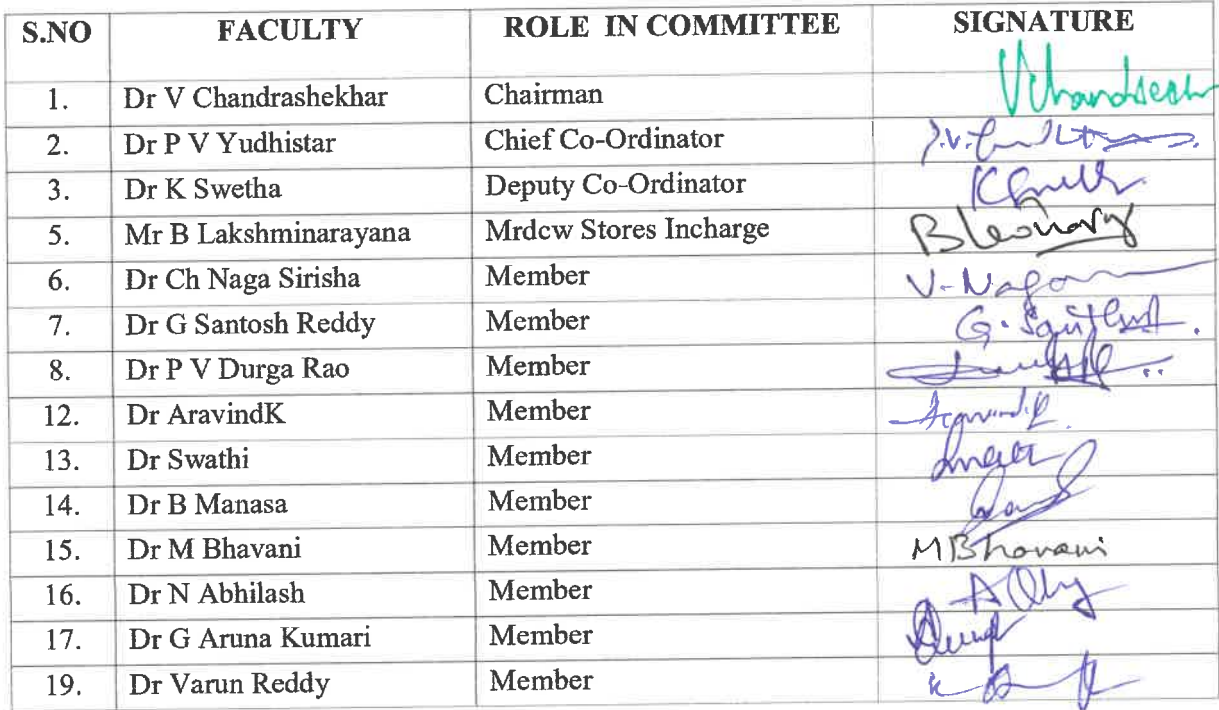 S.NO FACULTY ROLE IN COMMITTEE SIGNATURE
1. Dr V Chandrashekhar Chairman
2. Dr P V Yudhistar Chief Co-Ordinator
3. Dr K Swetha Deputy Co-Ordinator
5. Mr B Lakshminarayana Mrdcw Stores Incharge
6. Dr Ch Naga Sirisha Member
7. Dr G Santosh Reddy Member
8. Dr P V Durga Rao Member
12. Dr AravindK Member
13. Dr Swathi Member
14. Dr B Manasa Member
15. Dr M Bhavani Member MBhavani
16. Dr N Abhilash Member
17. Dr G Aruna Kumari Member
19. Dr Varun Reddy Member